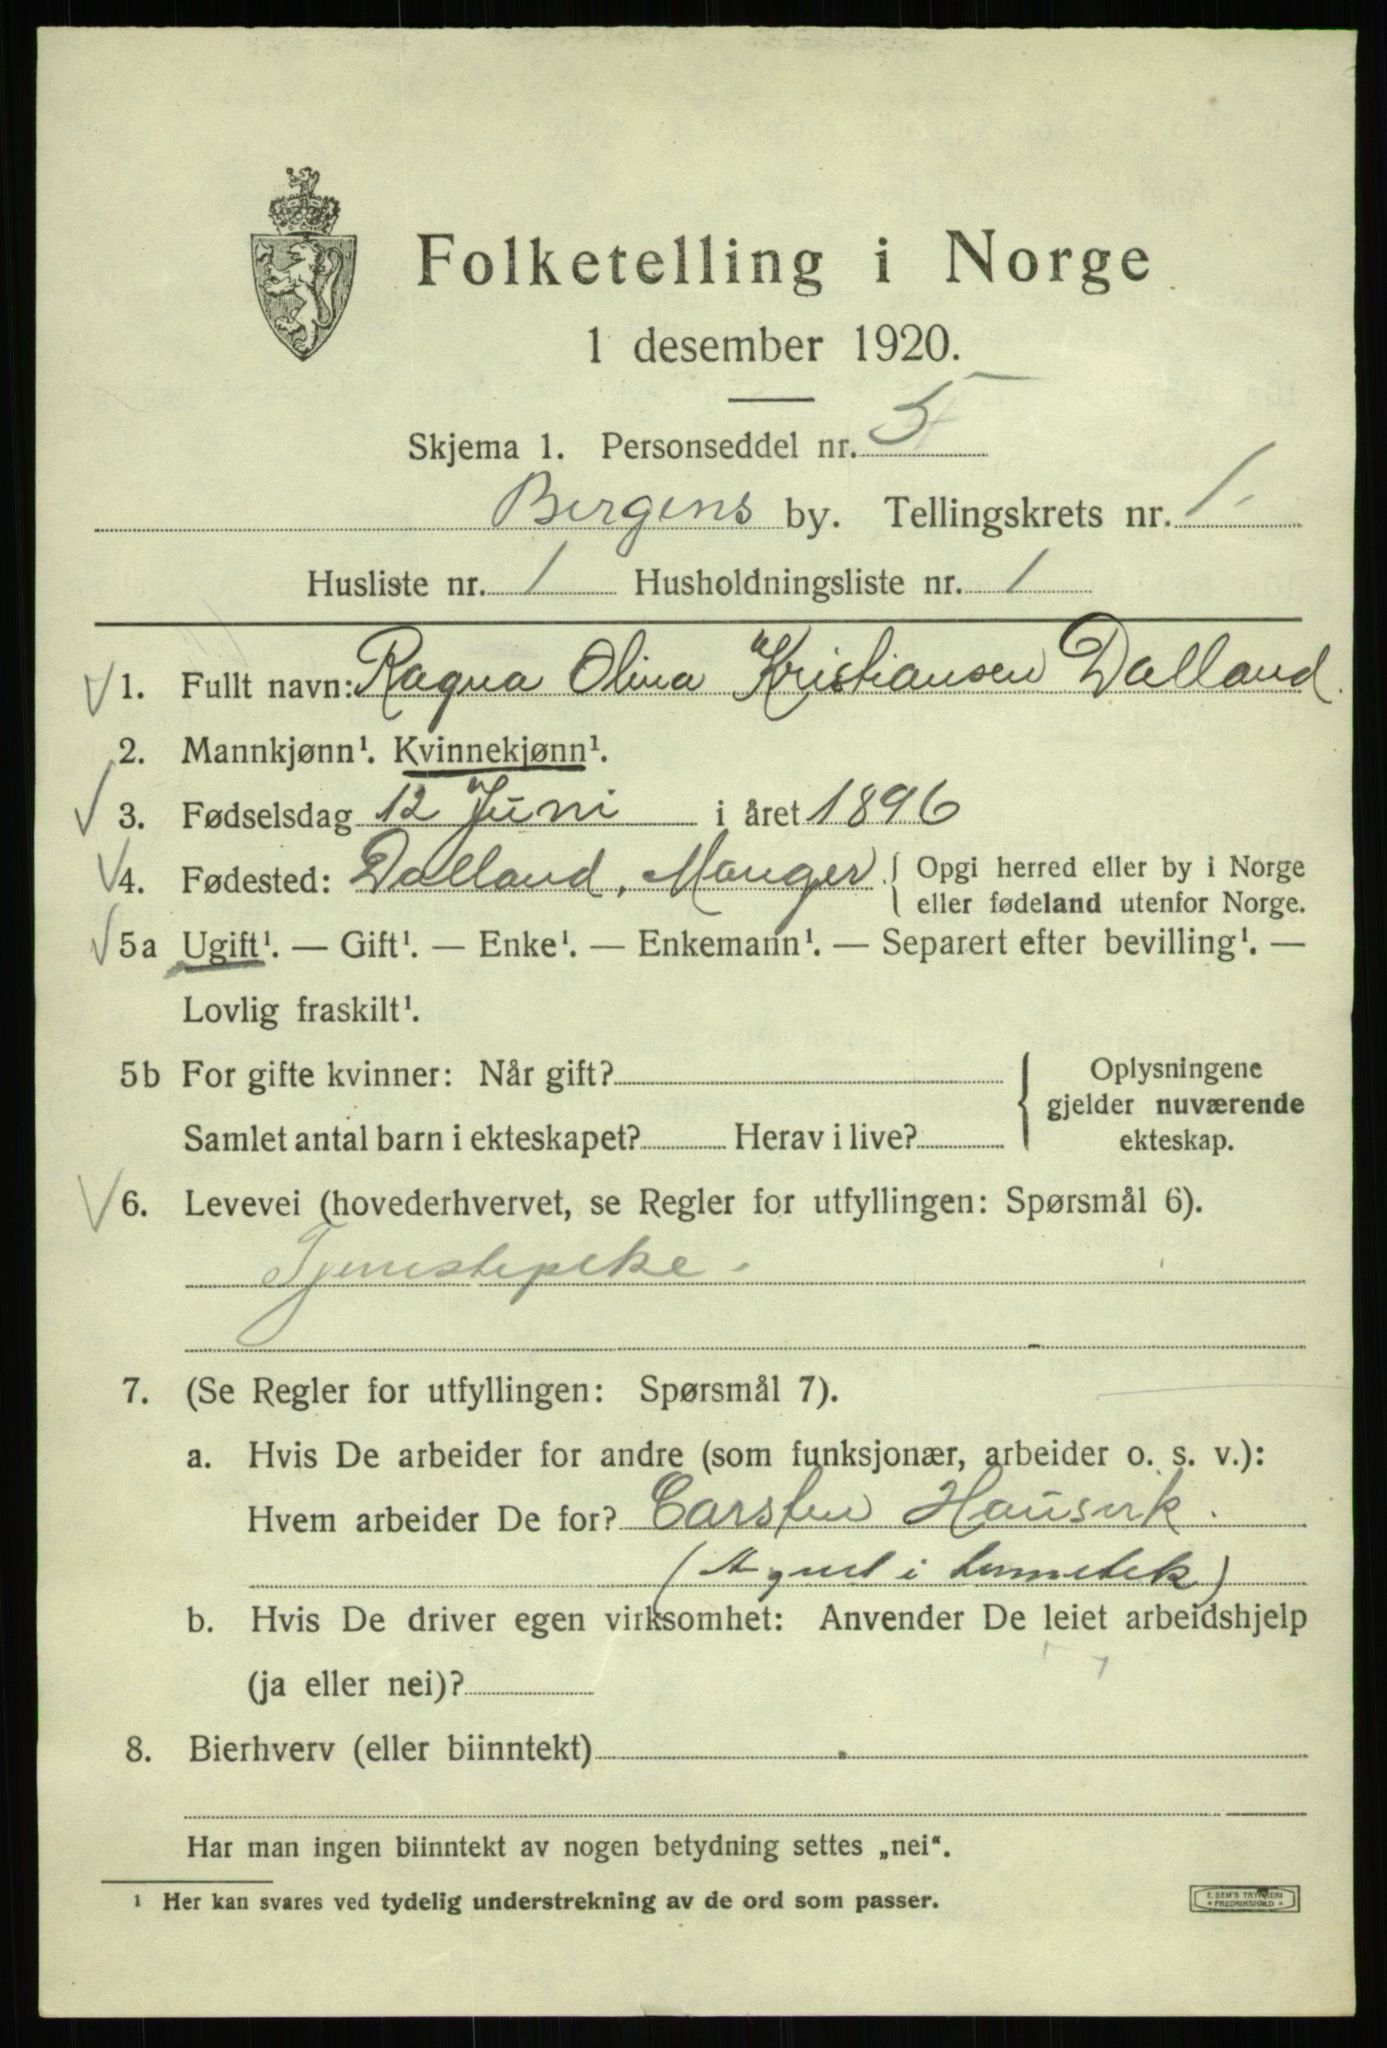 Folketelling i Norge
1 desember 1920.
Skjema 1. Personseddel nr. 5
Bergens by. Tellingskrets nr. 1
Husliste nr. 1 Husholdningsliste nr. 1
1. Fullt navn: Ragna Olina Kristiansen Dalland.
2. Mannkjønn¹. Kvinnekjønn¹.
3. Fødselsdag 12 Juni i året 1896
4. Fødested: Dalland, Manger. { Opgi herred eller by i Norge
eller fødeland utenfor Norge.
5a Ugift¹. — Gift¹. — Enke¹. — Enkemann¹. — Separert efter bevilling¹. —
Lovlig fraskilt¹.
5b For gifte kvinner: Når gift? { Oplysningene
gjelder nuværende
Samlet antal barn i ekteskapet? Herav i live? ekteskap.
6. Levevei (hovederhvervet, se Regler for utfyllingen: Spørsmål 6).
Tjenestepike.
7. (Se Regler for utfyllingen: Spørsmål 7).
a. Hvis De arbeider for andre (som funksjonær, arbeider o. s. v.):
Hvem arbeider De for? Carsten Hausvik.
(Agent i hermetik)
b. Hvis De driver egen virksomhet: Anvender De leiet arbeidshjelp
(ja eller nei)?
8. Bierhverv (eller biinntekt)
Har man ingen biinntekt av nogen betydning settes „nei“.
¹ Her kan svares ved tydelig understrekning av de ord som passer.
E. SEM'S TRYKKERI
* FREDRIKSHALD *